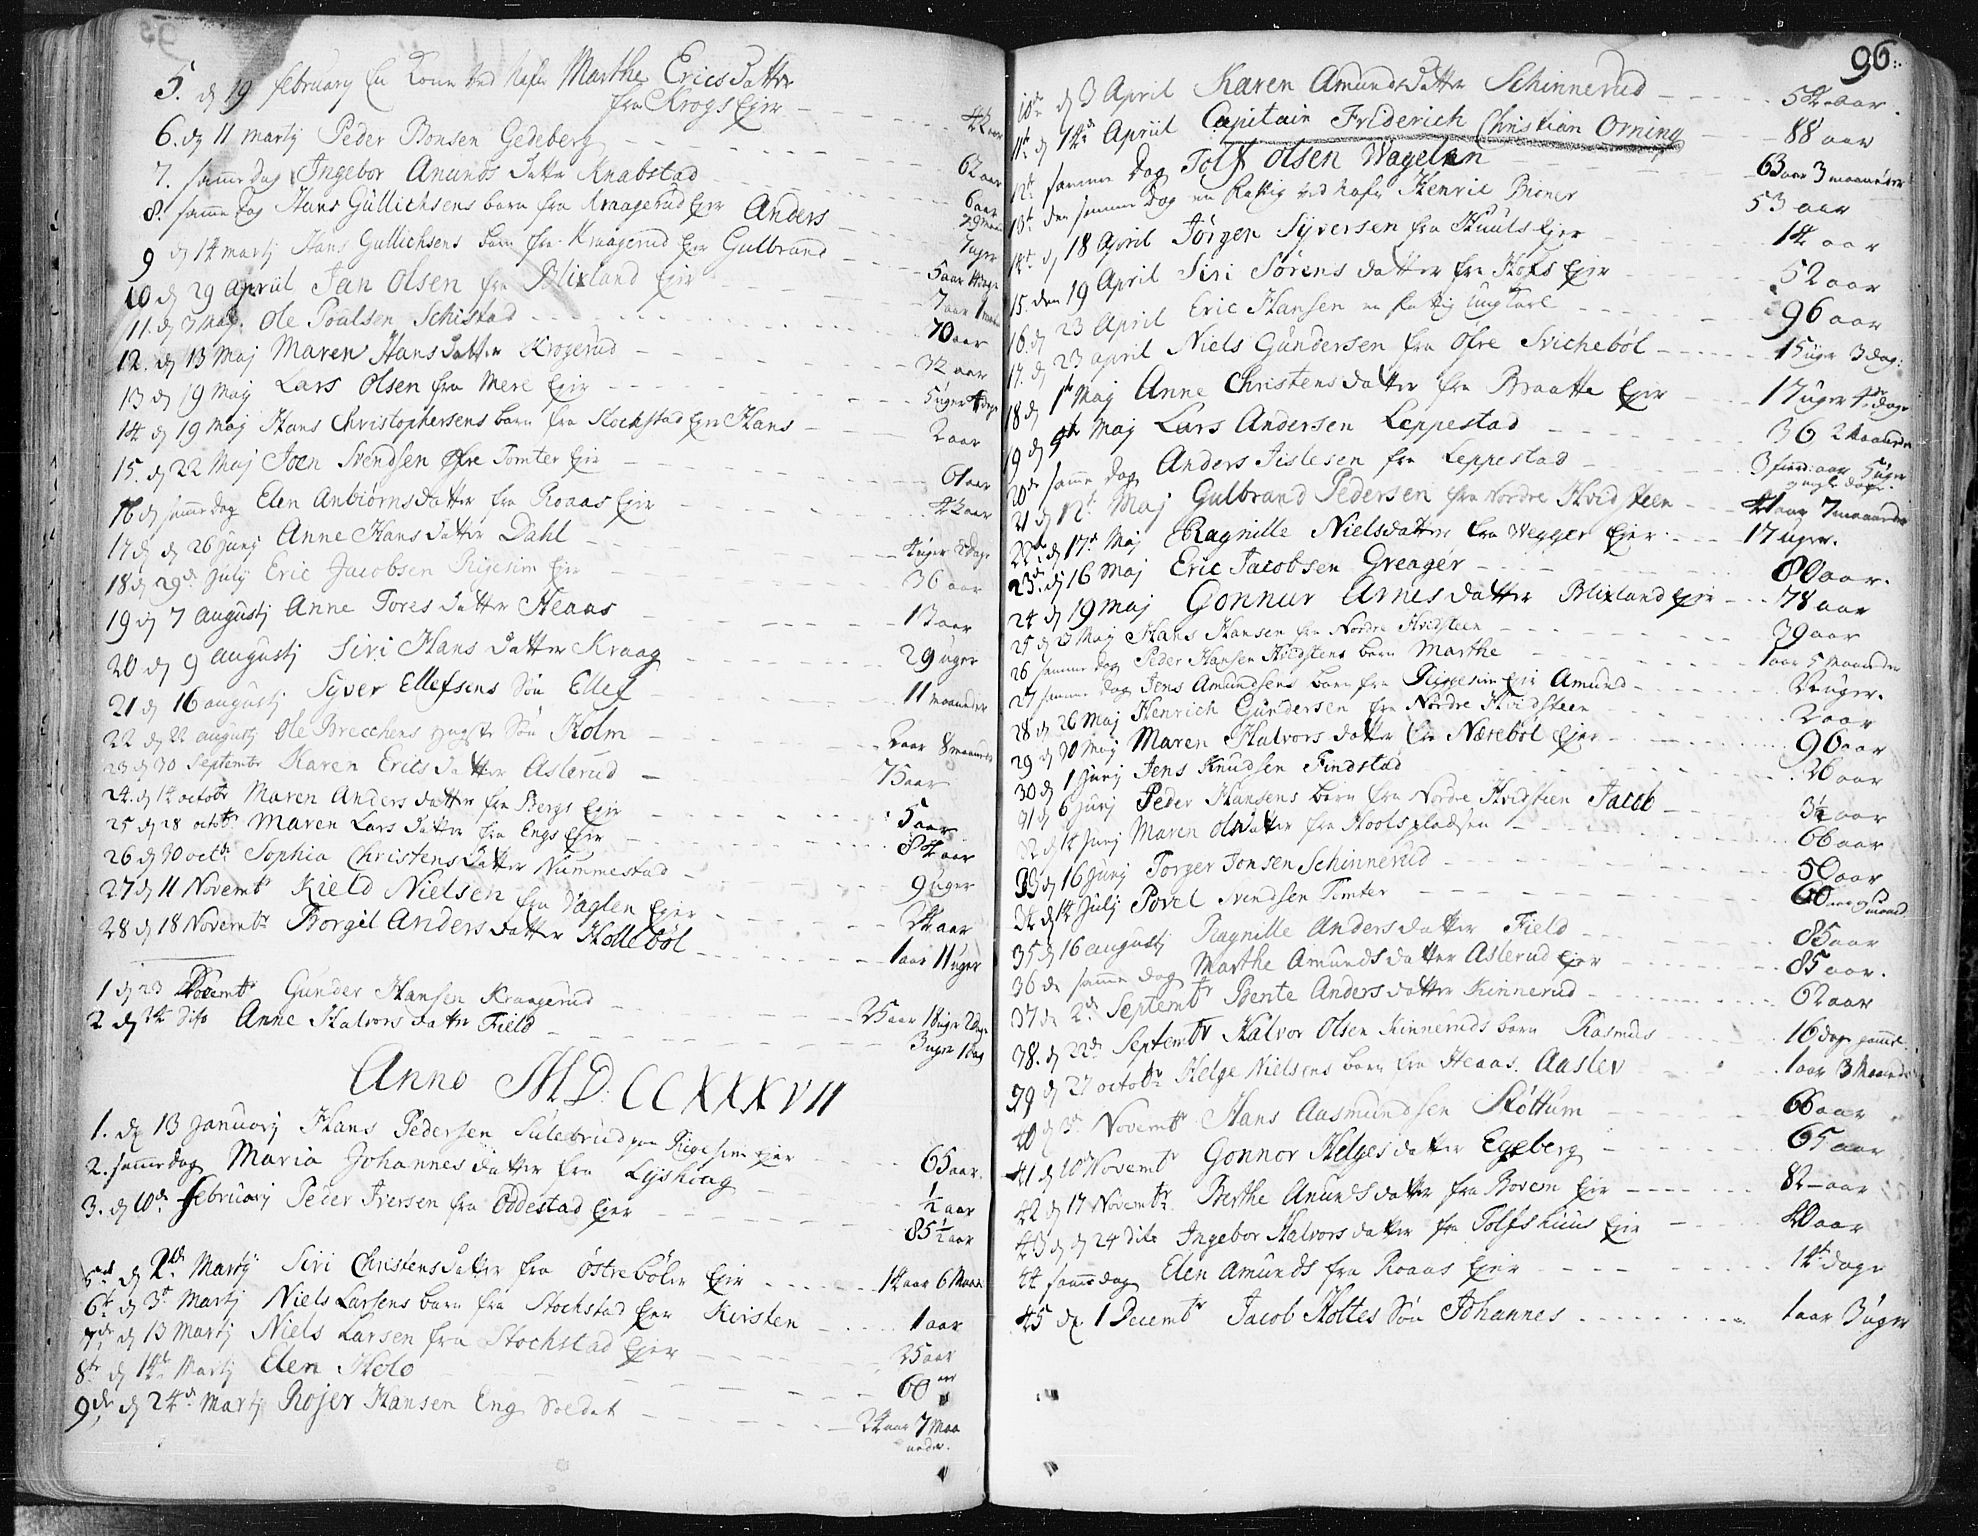 5. dj 19 february En Kone ved nafn Marthe Ericsdatter
fra Krogs Ejer 42 aar
6. dj 11 martij Peder Bonsen Gedeberg 62 aar
7. samme dag Ingebor Anunds datter Knabstad 6 aar
8. samme dag Hans Gullichsens barn fra Kraagerud Ejer Anders
9 dj 14 martij Hans Gullichsens barn fra Kraagerud Ejer Gulbrand 7 uger
10 dj 29 April Jan Olsen fra Blixland Ejer 5 aar
11. dj 3 Maj. Ole Poulsen Schistad 7 aar 1
12. dj 13 Maj Maren Hansdatter Krogerud 70 aar
13 dj 19 Maj Lars Olsen fra Mere Ejer 32 aar
14 dj 19 Maj Hans Christophersens barn fra Stochstad Ejer Hans 5 uger 4 dage
15. dj 22 Maj Joen Svendsen Øfre Tomter Ejer 2 aar
16 dj samme dag Elen Anbiørnsdatter fra Roaas Ejer 61 aar
17 dj 26 Junj Anne Hansdatter Dahl 42 aar
18 dj 29de Julij Eric Jacobsen Rigesim Ejer 4 uger 2 dage
19 dj 7 Augustj Anne Tores datter Heaas 36 aar
20 dj 9 augustj Siri Hans datter Kraag 13 aar
21 dj 16 augustj Syver Ellefsens Søn Ellef 29 uger
22 dj 22 augustj Ole Brecchens yngste Søn Holm 11 maaneder
23 dj 30 Septembr Karen Erics datter Aslerud 2 aar 8 maaneder
24. dj 14 octobr Maren Anders datter fra Bergs Ejer 73 aar
25 dj 28 octobr Maren Lars datter fra Engs Ejer 5 aar
26 dj 30 octbr Sophia Christens datter Nummestad 84 aar
27 dj 11 Novembr Kield Nielsen fra Daglen Ejer 9 uger
28 dj 18 Novembr Borgil Anders datter Hollebøl 24 aar
1 aar 11 uger
1 dj 23 Decembr Gunder Hansen Kraagerud 25 aar 18 uger 2 dage
2 dj 24 dito Anne Halvors datter Field 3 uger 1 dag
Anno MD:CCXXXVII
1. dj 13 Januarij Hans Pedersen Sulebrud paa Rigesim ejer 65 aar.
2. samme dag Maria Johannes datter fra Lyshoug 1/2 aar
3. dj 10de februarij Peder Iversen fra Oddestad Ejer 85 1/2 aar
5te dj 2de Martij Siri Christensdatter fra Østrebøler Ejer 14 aar 6 Maan
6te dj 3de Martij Niels Larsens barn fra Stochstad Ejer Kirsten 1 aar
7de dj 13 Martij Niels Larsen fra Stochstad Ejer 35 aar
8te dj 14de Martij Elen Holo 60 aar
9de dj 24de Martij Rojer Hansen Eng Soldat 24 aar 7 Maa
neder.
96
10de dj 3 April Karen Amundsdatter Schinnerud 54 aar
11te dj 14de April Capitain Friderich Christian Orning 88 aar
12te samme Dag Tolf Olsen Wagelen 63 aar 3 maaneder
13de den samme Dag en fattig ved nafn Henric Bioner 53 aar
14de dj 18 April Jørgen Syversen fra Huuls Ejer 14 aar
15. den 19 April Siri Sørens datter fra Hofs Ejer 52 aar
16. dj 23 April Eric Hansen en fattig ungKarl 96 aar
17. dj 23 april Niels Gundersen fra Øfre Svichebøl 15 uger 3 dag:
18 dj 1ste Maj Anne Christensdatter fra Braatte Ejer 17 uger 4 dage
19 dj 9de Maj Lars Andersen Leppestad 36 2 Maaneder
20de samme dag Anders Jislesen fra Leppestad 3 fierd: aar 5 uger
21 dj 12te Maj Gulbrand Pedersen fra Nordre Hvidsteen 41 aar 7 maaneder
22de dj 17de Maj Ragnille Nielsdatter fra Wegger Ejer 17 uger.
23de dj 16 Maj Eric Jacobsen Greager 80 aar.
24 dj 19 Maj Gonnur Arnes datter Blixland Ejer 78 aar
25 dj 23 Maj Hans Hansen fra Nordre Hvidsteen 39 aar
26 samme dag Peder Hansen Hvidstens barn Marthe 1 aar 5 Maaneder
27 samme dag Jens Amundsens barn fra Rigesim Ejer Amund uger.
28 dj 26 Maj Henrich Gundersen fra Nordre Hvidsteen 2 aar
29 dj 30 Maj Maren Halvors datter fra Næsebøl Ejer 96 aar
30 dj 1 Junj Jens Knudsen Findstad 26 aar
31 dj 6 Junj Peder Hansens barn fra Nordre Hvidsteen Jacob 3 1/2 aar
32 dj 14 Junj Maren Olsdatter fra Hools pladsen 66 aar
33 dj 16 Junj Torger Jonsen Schinnerud 50 aar
34 dj 14 Julj Povel Svendsen Tomter 60 aar 9 maaned
35 dj 16 augustj Ragnille Anders datter Field 85 aar
36 de samme dag Marthe Amunds datter Aslerud Ejer 85 aar.
37 de 2de Septembr Bente Anders datter Kinnerud 62 aar
38. dj 22de Septembr Halvor Olsen Kinneruds barn Rasmus 16 dage gammel
39 dj 27 octobr Helge Nielsens barn fra Heaas. Aaslev 1 aar 3 Maaneder
40 dj 3de Novembr Hans Aasmundsen Støttum 66 aar
41 dj 10 Novembr Gonnor Helgesdatter Egeberg 65 aar
42 dj 17 Novembr Berthe Anunds datter fra Bovem Ejer 82 aar
43 dj dj 24 dito Ingebor Halvors datter fra Tolfshuus Ejer 40 aar
44 samme dag Elen Amunds fra Roaas Ejer 14 dage
45 dj 1 Decembr Jacob Holtes Søn Johannes 1 aar 3 uger